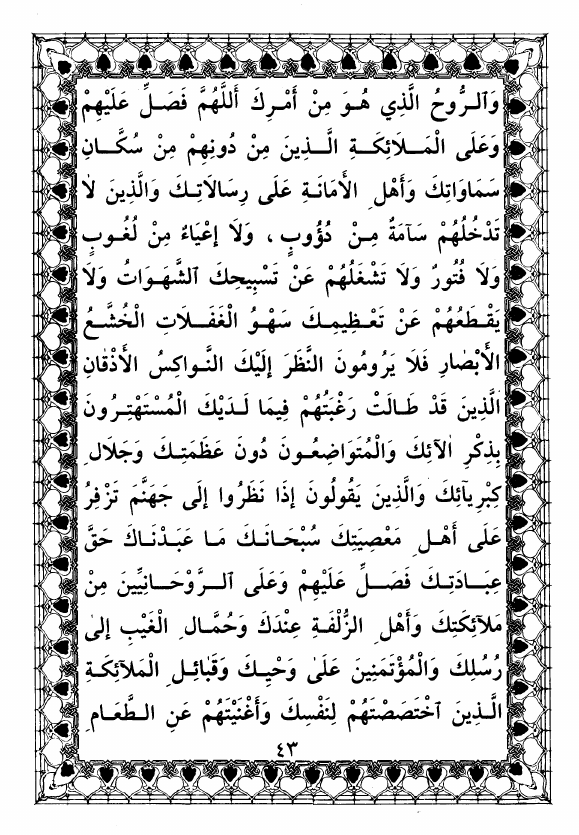 وَٱلرُّوحُ الَّذِي هُوَ مِنْ أَمْرِكَ أَللَّهُمَّ فَصَلِّ عَلَيْهِمْ
وَعَلَى الْمَلَائِكَةِ الَّذِينَ مِنْ دُونِهِمْ مِنْ سُكَّانِ
سَمَاوَاتِكَ وَأَهْلِ الأَمَانَةِ عَلَى رِسَالَاتِكَ وَالَّذِينَ لَا
تَدْخُلُهُمْ سَآمَةٌ مِنْ دُؤُوبٍ ، وَلَا إِعْيَاءٌ مِنْ لُغُوبٍ
وَلَا فُتُورٌ وَلَا تَشْغَلُهُمْ عَنْ تَسْبِيحِكَ ٱلشَّهَوَاتُ وَلَا
يَقْطَعُهُمْ عَنْ تَعْظِيمِكَ سَهْوُ الْغَفَلَاتِ الْخُشَّعُ
الأَبْصَارِ فَلَا يَرُومُونَ النَّظَرَ إِلَيْكَ النَّوَاكِسُ الأَذْقَانِ
الَّذِينَ قَدْ طَالَتْ رَغْبَتُهُمْ فِيمَا لَدَيْكَ الْمُسْتَهْتِرُونَ
بِذِكْرِ اٰلَائِكَ وَالْمُتَوَاضِعُونَ دُونَ عَظَمَتِكَ وَجَلَالِ
كِبْرِيآئِكَ وَالَّذِينَ يَقُولُونَ إِذَا نَظَرُوا إِلَى جَهَنَّمَ تَزْفِرُ
عَلَى أَهْلِ مَعْصِيَتِكَ سُبْحَانَكَ مَا عَبَدْنَاكَ حَقَّ
عِبَادَتِكَ فَصَلِّ عَلَيْهِمْ وَعَلَى ٱلرَّوْحَانِيِّينَ مِنْ
مَلَائِكَتِكَ وَأَهْلِ الزُّلْفَةِ عِنْدَكَ وَحُمَّالِ الْغَيْبِ إِلىٰ
رُسُلِكَ وَالْمُؤْتَمَنِينَ عَلَىٰ وَحْيِكَ وَقَبَائِلِ الْمَلآئِكَةِ
الَّذِينَ ٱخْتَصَصْتَهُمْ لِنَفْسِكَ وَأَغْنَيْتَهُمْ عَنِ الطَّعَامِ
٤٣